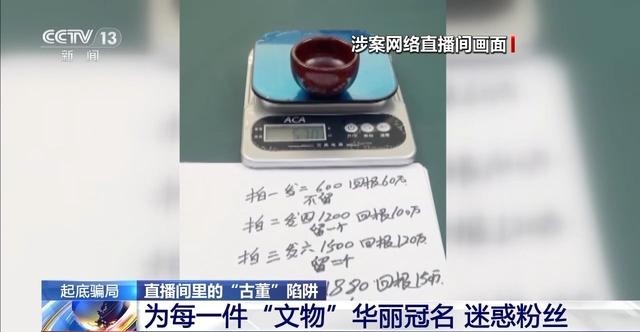 CCTV 13
新闻
涉案网络直播间画面
ACA
拍一发二600回报60万
不留
拍二发四1200回报100万
留一个
拍三发六1500回报120万
留一个
1880回报15万
起底骗局
直播间里的“古董”陷阱
为每一件“文物”华丽冠名 迷惑粉丝